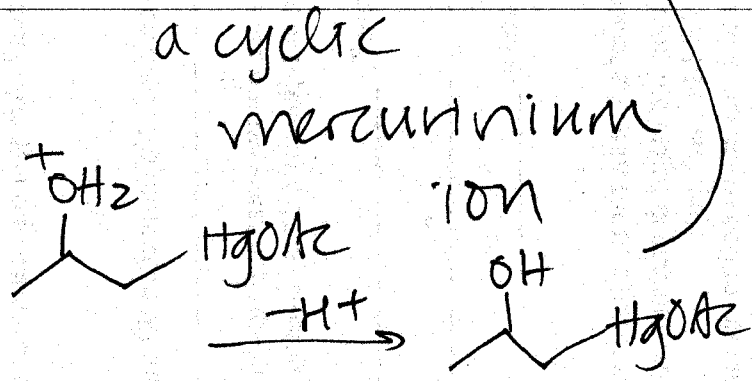 a cyclic
mercurinium
ion
+
OH2
HgOAc
-H+
OH
HgOAc